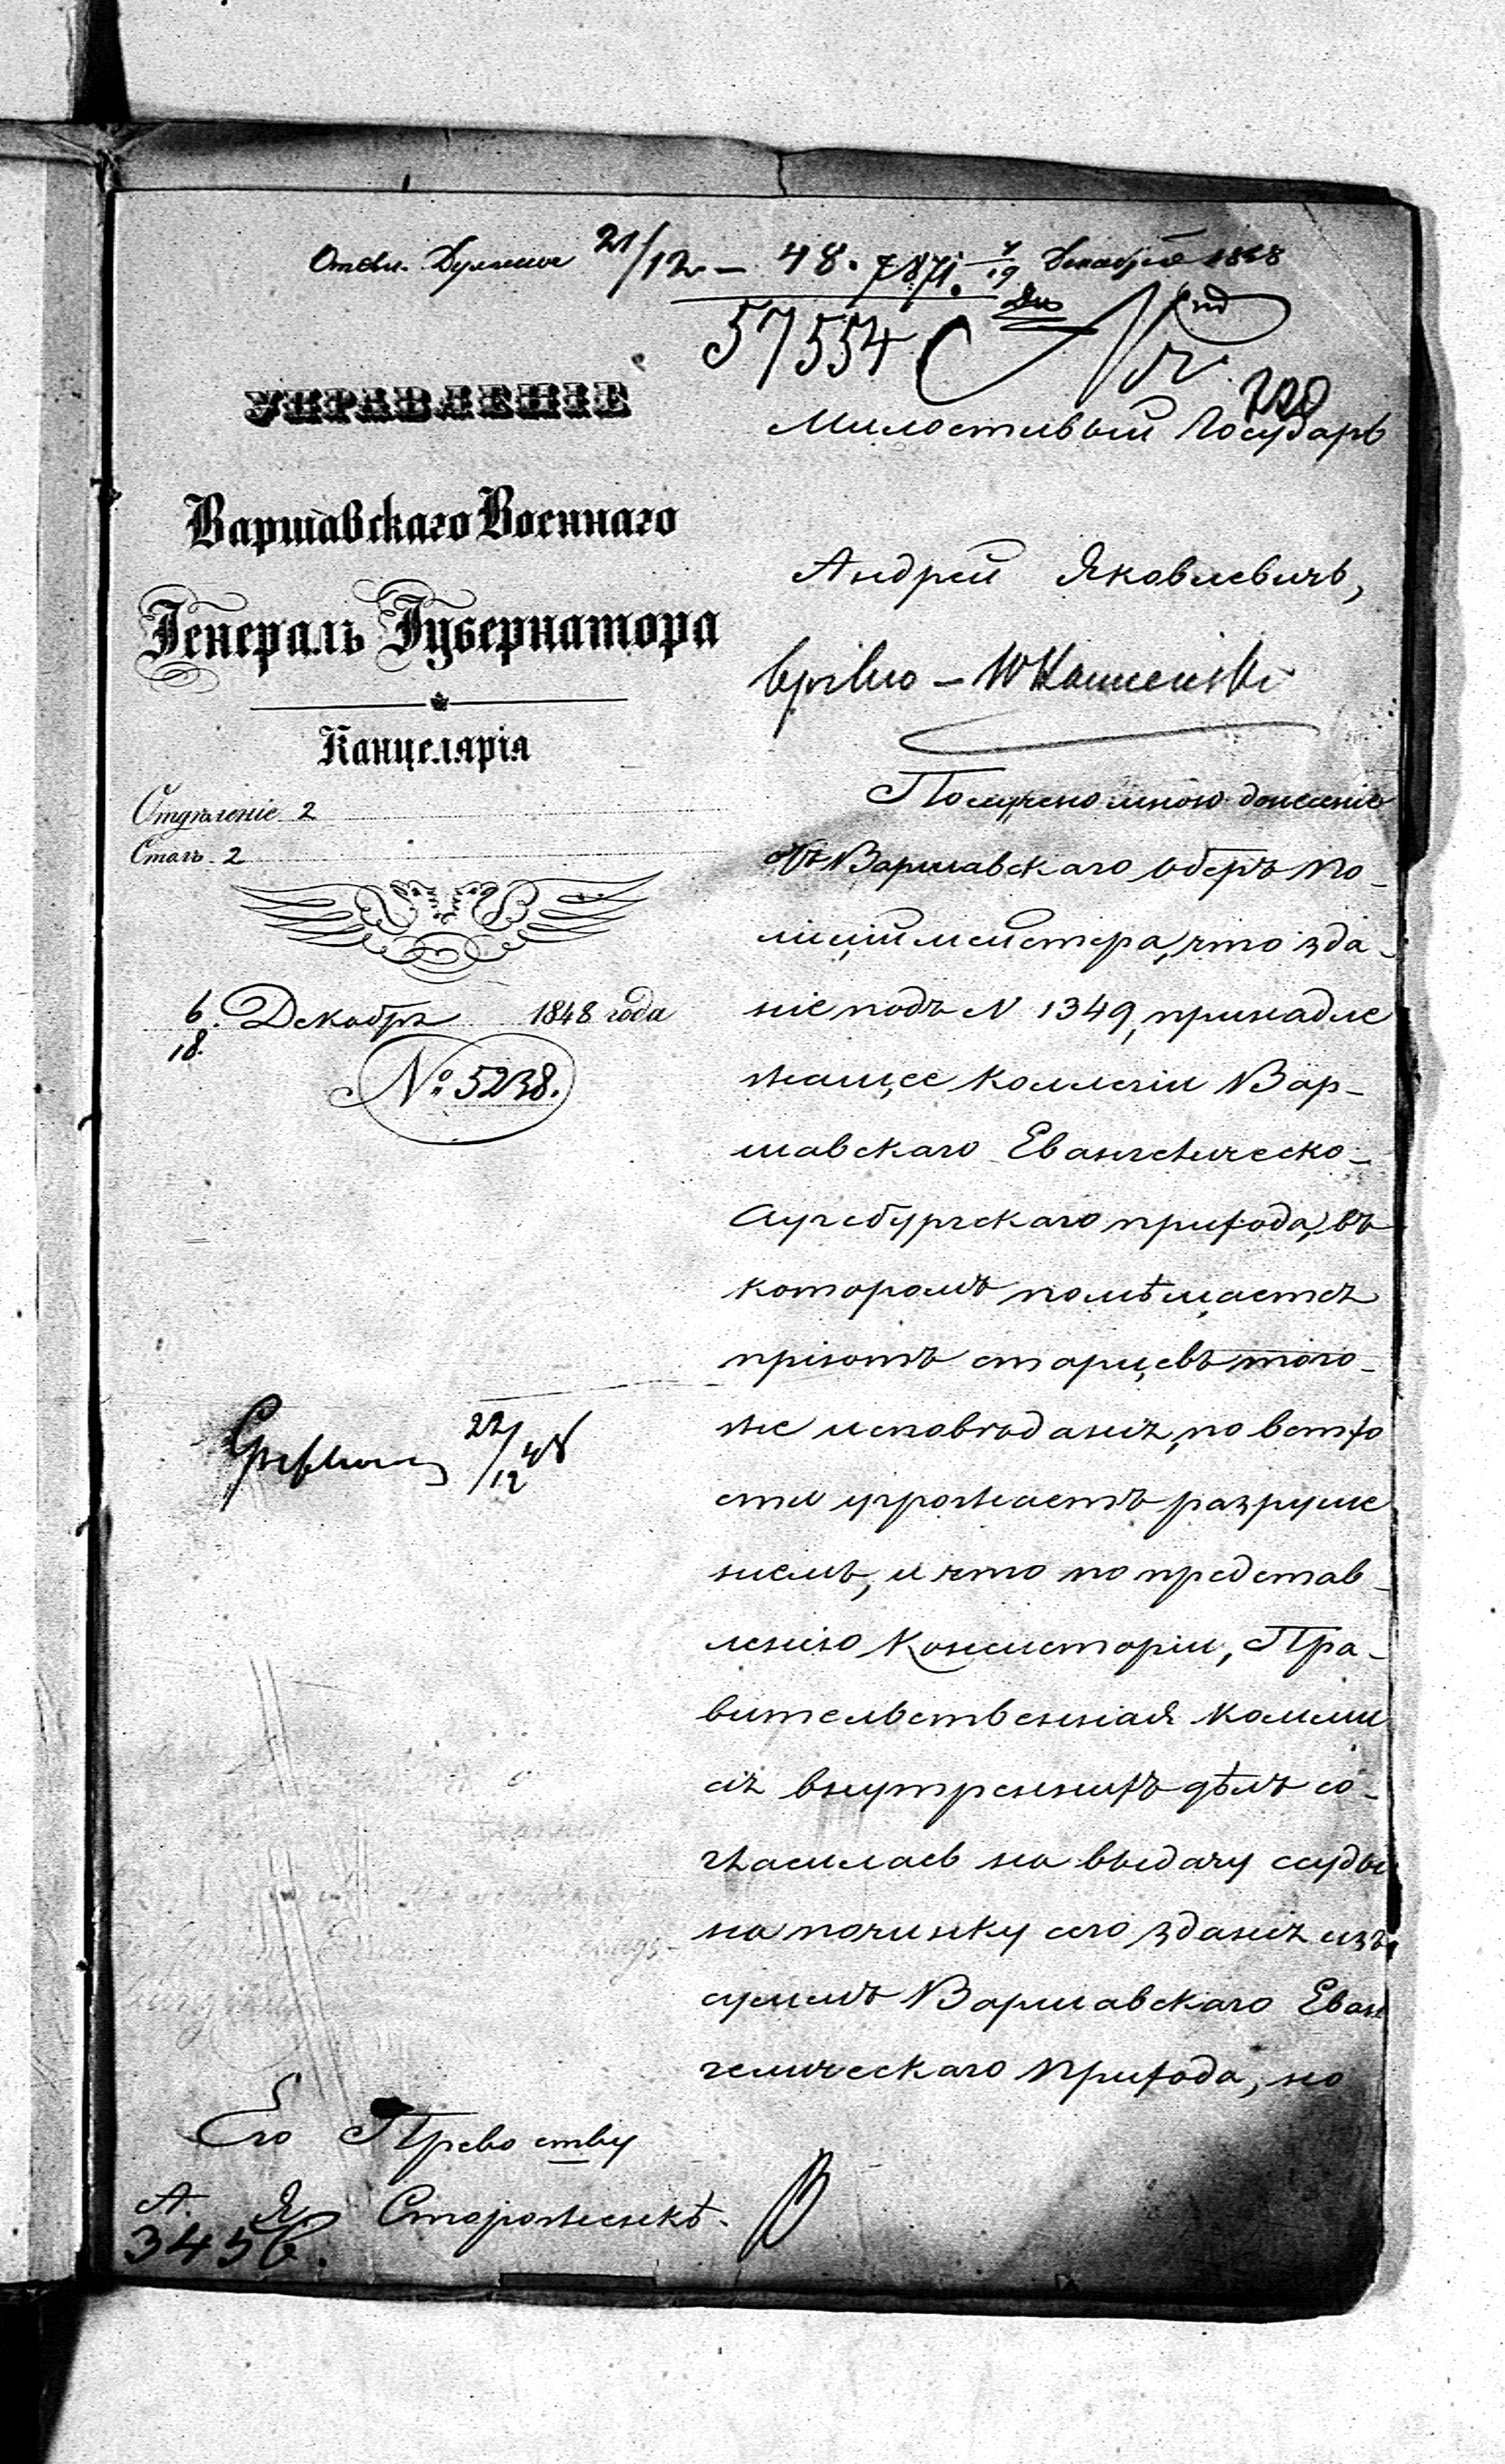 21/12 – 48. 7871. 7/19 Декабря 1848
57554
720
УПРАВЛЕНІЕ
Варшавскаго Военнаго
Генералъ Губернатора
Канцелярія
Отдѣленіе 2
Столъ 2
6/18. Декабря 1848 года
№ 5238.
22/12 48
Его Прево ству
А. Я. Стороженкѣ.
3456.
Милостивый Государь
Андрей Яковлевичъ,
Получено мною донесеніе
отъ Варшавскаго Оберъ По-
лиціймейстера, что зда-
ніе подъ N 1349, принадле
жащее Коллегіи Вар-
шавскаго Евангелическо-
Аугсбургскаго прихода, въ
которомъ помѣщается
пріютъ старцевъ того-
же исповѣданія, по ветхо
сти угрожаетъ разруше
ніемъ, и что по представ-
ленію Консисторіи, Пра-
вительственная Комми
сія внутреннихъ дѣлъ со-
гласилась на выдачу ссуды
на починку сего зданія изъ
суммъ Варшавскаго Еван
гелическаго Прихода, но